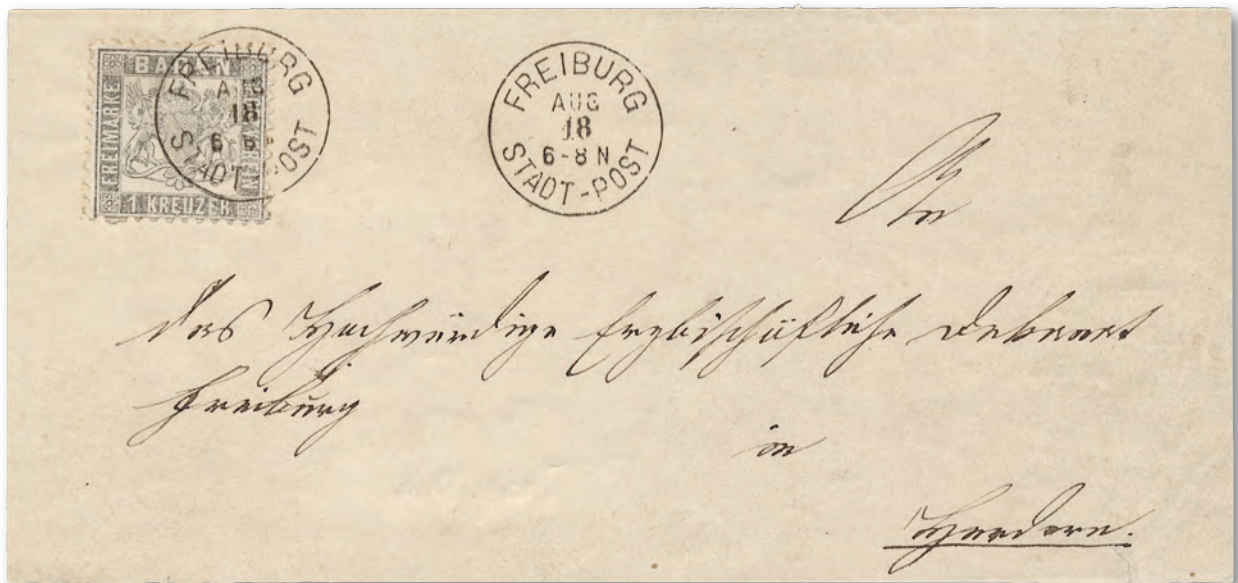 BADEN
FREIMARKE
1 KREUZER
FREIBURG
AUG
18
6-8 N
STADT-POST
FREIBURG
AUG
18
6-8 N
STADT-POST
An
das Hochwürdige Erzbischöfliche Dekanat
Freiburg
in
Herdern.